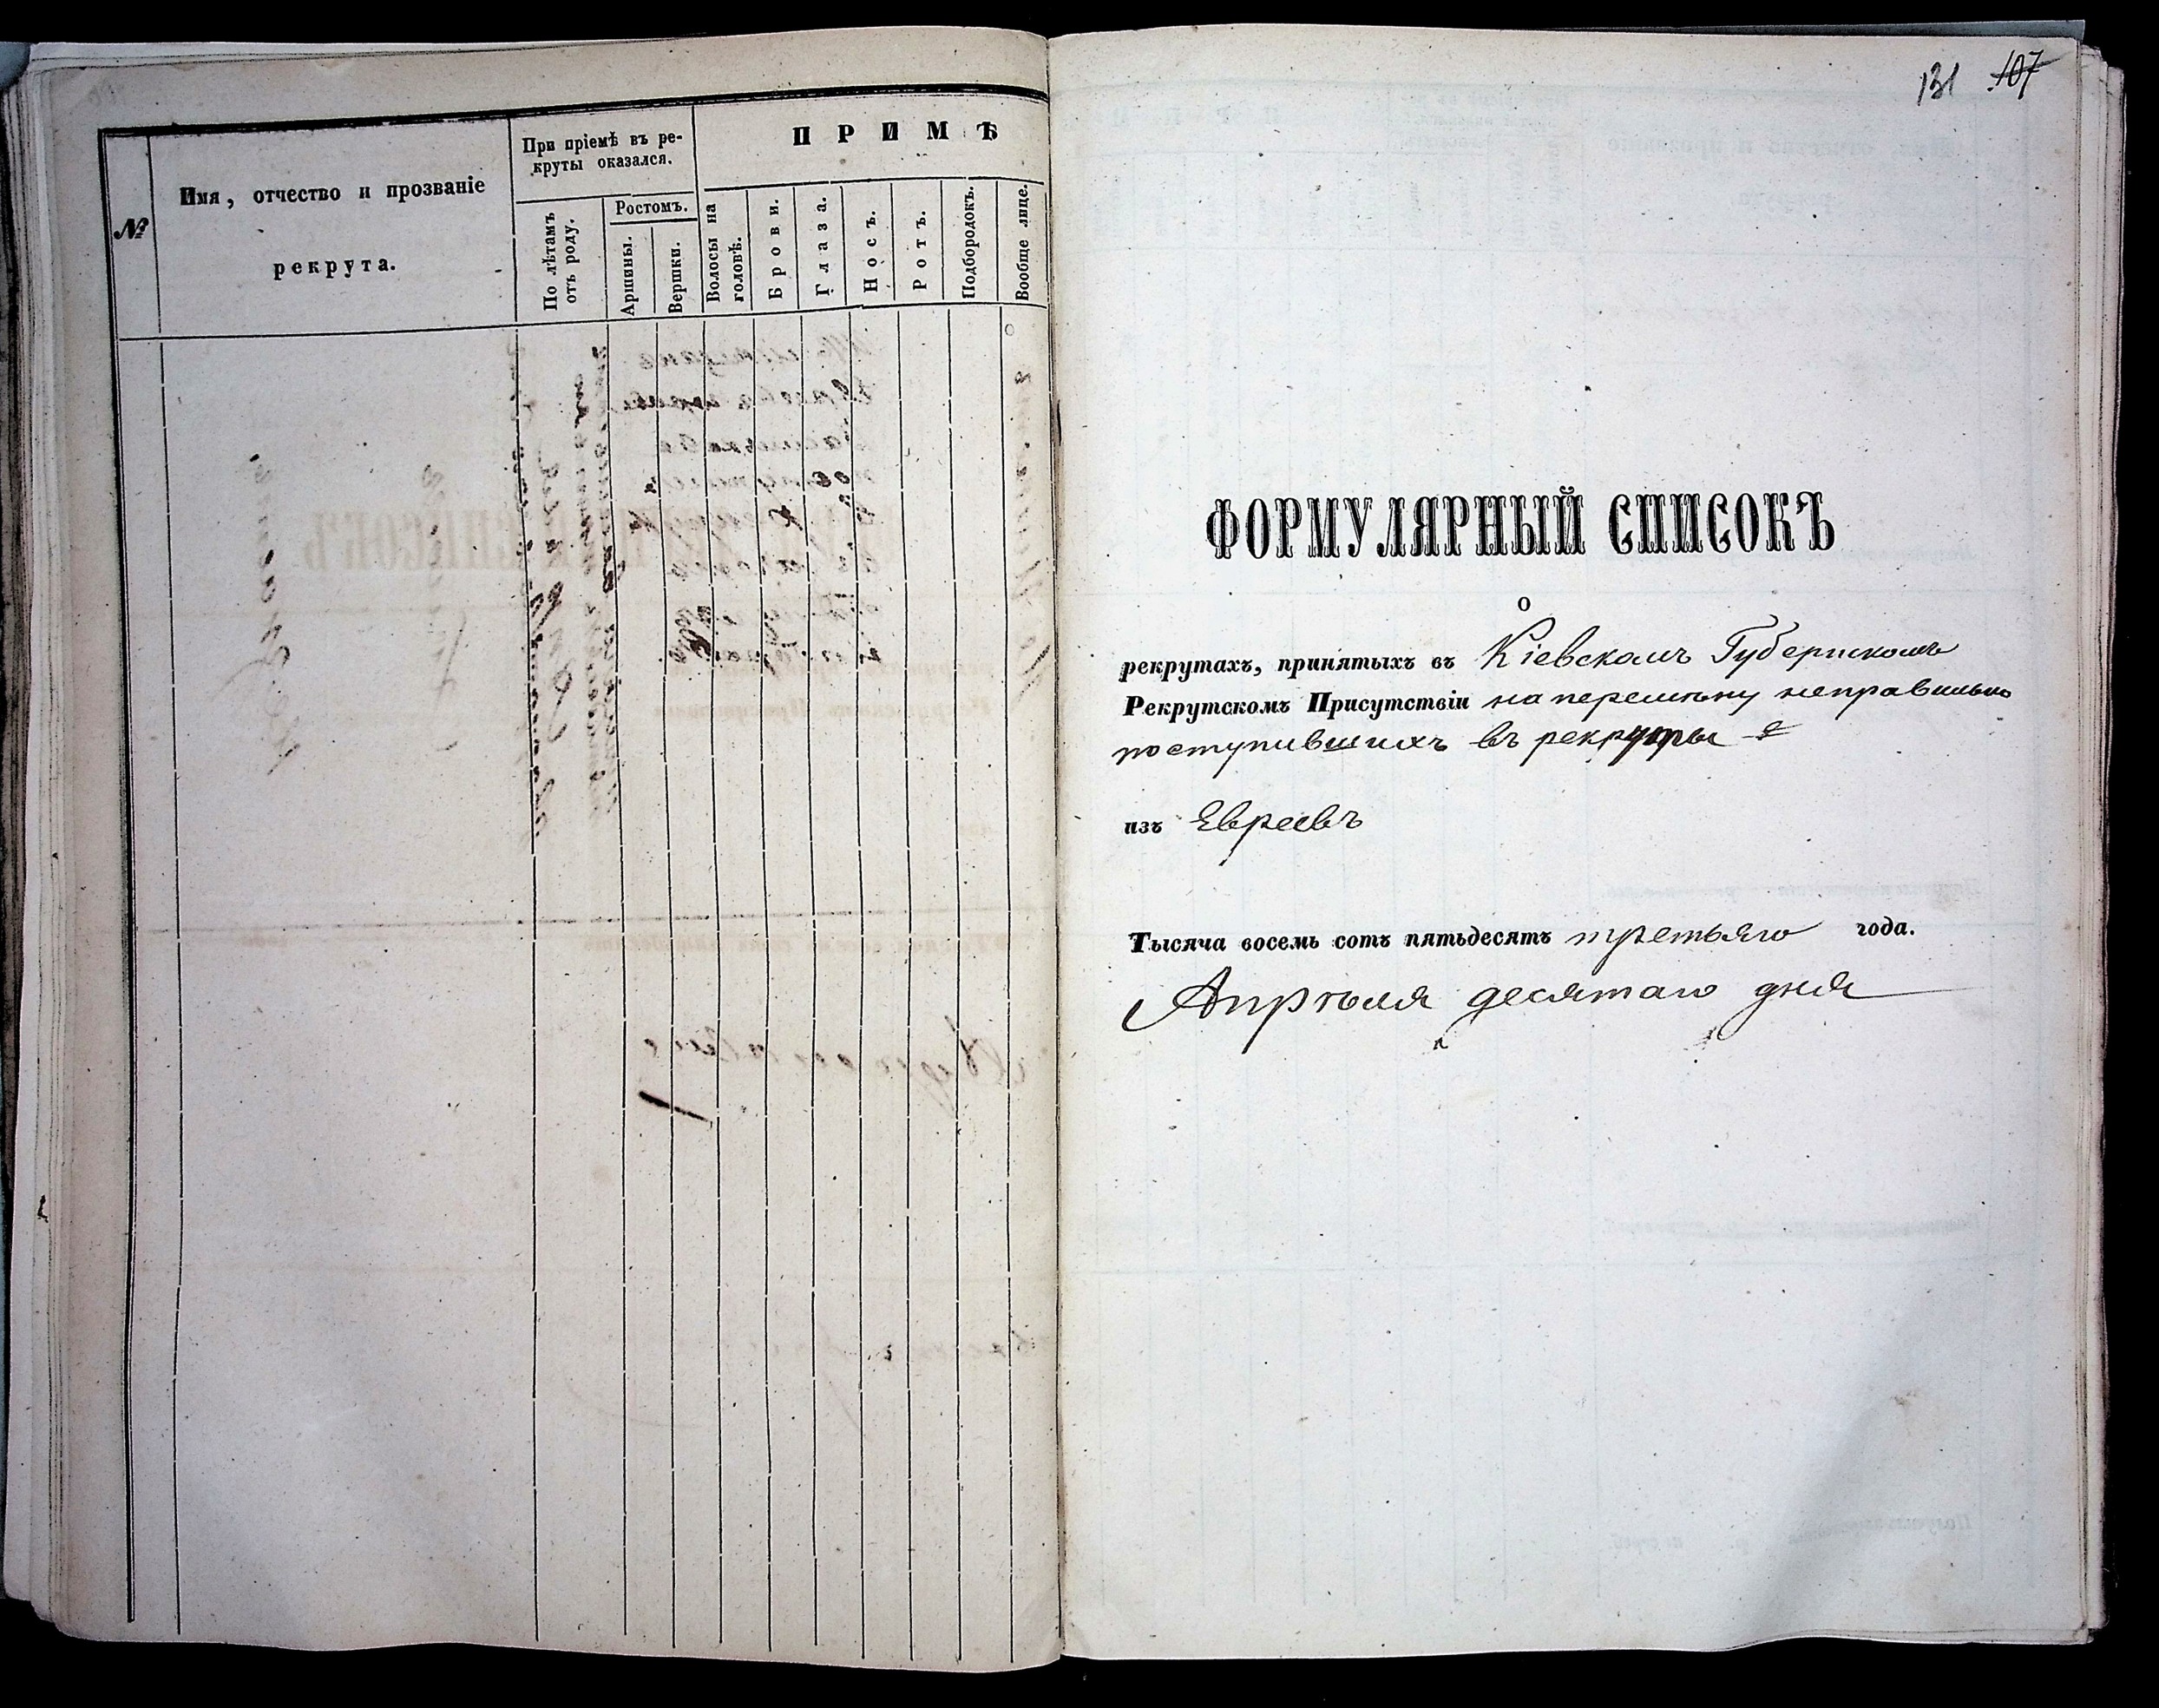 №
Имя, отчество и прозваніе
рекрута.
При пріемѣ въ ре-
круты оказался.
По лѣтамъ
отъ роду.
Ростомъ.
Аршины.
Вершки.
П Р И М Ѣ
Волосы на
головѣ.
Брови.
Глаза.
Носъ.
Ротъ.
Подбородокъ.
Вообще лице.
131 107
ФОРМУЛЯРНЫЙ СПИСОКЪ
О
рекрутахъ, принятыхъ въ Кіевскомъ Губернскомъ
Рекрутскомъ Присутствіи на перемѣну неправильно
поступившихъ въ рекруты
изъ Евреевъ
Тысяча восемь сотъ пятьдесятъ третьяго года.
Апрѣля десятаго дня